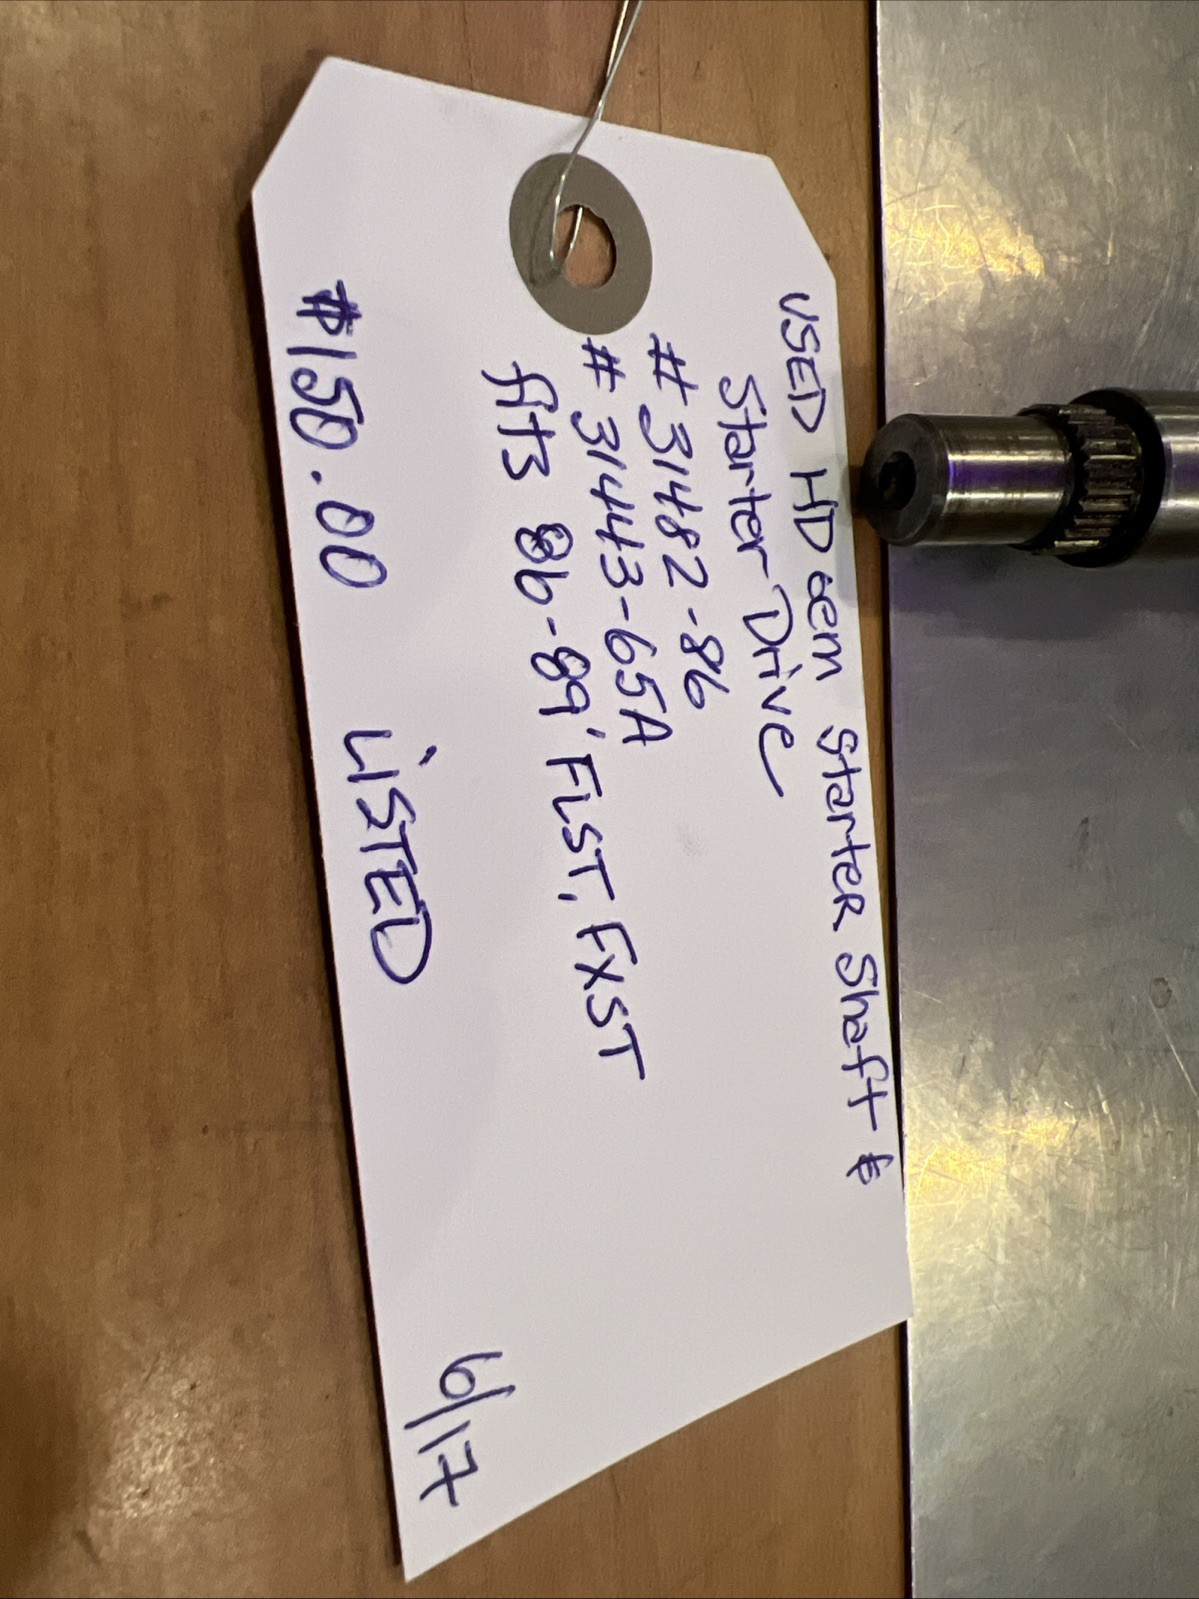 USED HD oem Starter Shaft &
Starter Drive
# 31482-86
# 31443-65A
fits 86-89' FLST, FXST
$150.00 LISTED
6/17